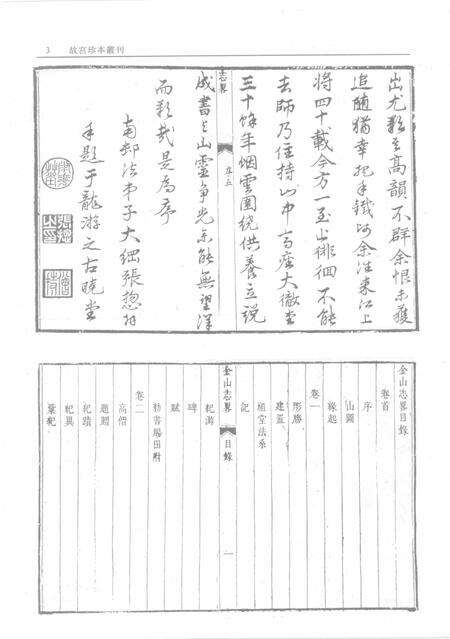 3 故宮珍本叢刊
出尤致至高韻不群余恨未獲
追隨猶幸把手鐵河余注東江上
將四十載今方一至山徘徊不能
去師乃住持山中高座大徹堂
三十餘年烟雲圍繞供養立説
志畧
序五
成書與山靈爭光余能無望洋
而歎哉是為序
南邨法弟子大細張惣
手題于龍游之古曉堂
金山志畧目錄
卷首
序
山圖
緣起
卷一
形勝
建置
祖堂法系
記
金山志畧
目錄
一
紀游
碑
賦
勅書賜田附
卷二
高僧
題贈
紀蹟
紀異
彙紀